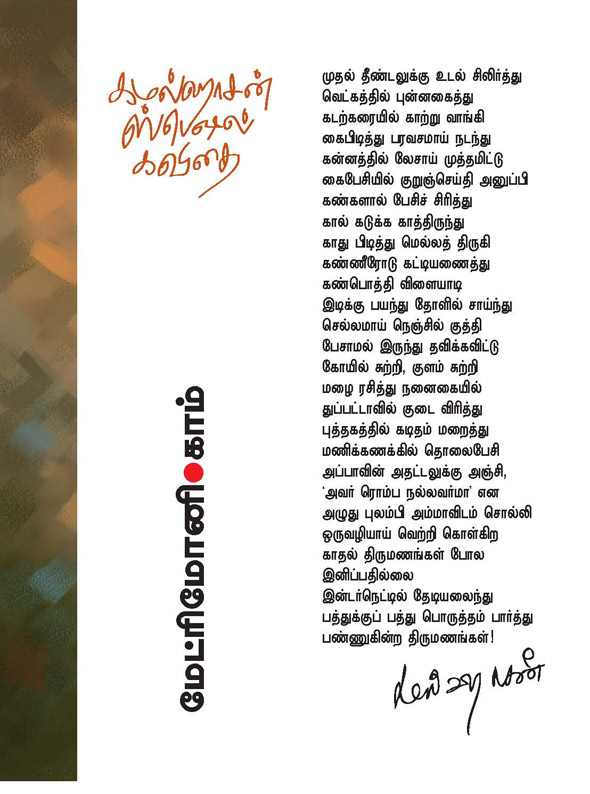 கமல்ஹாசன்
ஸ்பெஷல்
கவிதை
மேட்ரிமோனி.காம்
முதல் தீண்டலுக்கு உடல் சிலிர்த்து
வெட்கத்தில் புன்னகைத்து
கடற்கரையில் காற்று வாங்கி
கைபிடித்து பரவசமாய் நடந்து
கன்னத்தில் லேசாய் முத்தமிட்டு
கைபேசியில் குறுஞ்செய்தி அனுப்பி
கண்களால் பேசிச் சிரித்து
கால் கடுக்க காத்திருந்து
காது பிடித்து மெல்லத் திருகி
கண்ணீரோடு கட்டியணைத்து
கண்பொத்தி விளையாடி
இடிக்கு பயந்து தோளில் சாய்ந்து
செல்லமாய் நெஞ்சில் குத்தி
பேசாமல் இருந்து தவிக்கவிட்டு
கோயில் சுற்றி, குளம் சுற்றி
மழை ரசித்து நனைகையில்
துப்பட்டாவில் குடை விரித்து
புத்தகத்தில் கடிதம் மறைத்து
மணிக்கணக்கில் தொலைபேசி
அப்பாவின் அதட்டலுக்கு அஞ்சி,
'அவர் ரொம்ப நல்லவர்மா' என
அழுது புலம்பி அம்மாவிடம் சொல்லி
ஒருவழியாய் வெற்றி கொள்கிற
காதல் திருமணங்கள் போல
இனிப்பதில்லை
இன்டர்நெட்டில் தேடியலைந்து
பத்துக்குப் பத்து பொருத்தம் பார்த்து
பண்ணுகின்ற திருமணங்கள்!
கமல் ஹாசன்